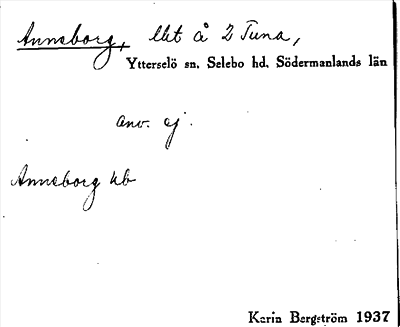 Annaborg, lht å 2 Tuna,
Ytterselö sn. Selebo hd. Södermanlands län
anv. ej.
Annaborg kb
Karin Bergström 1937